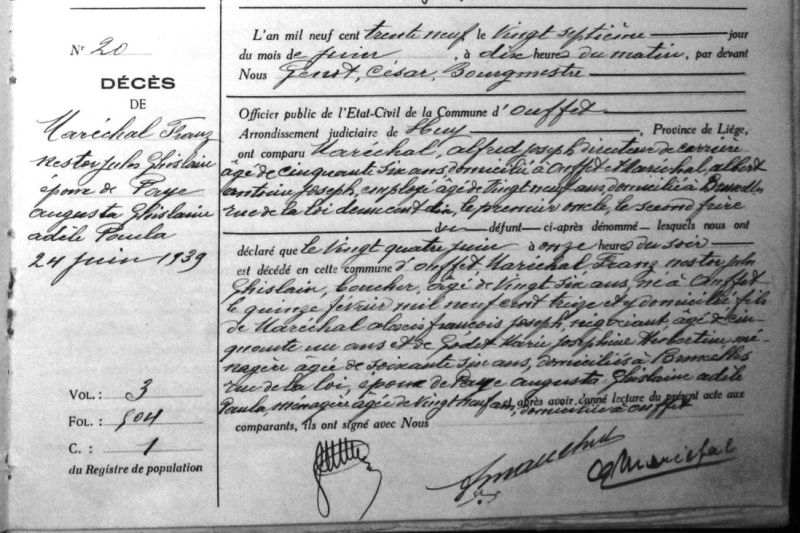 Nr 20
DÉCÈS
DE
Maréchal Franz
nestor Jules Ghislain
époux de Paye
augusta Ghislaine
adèle Paula
24 juin 1939
VOL.: 3
FOL.: 504
C.: 1
du Registre de population
L'an mil neuf cent trente neuf le vingt septième jour
du mois de juin, à dix heures du matin, par devant
Nous Genot, César, Bourgmestre
Officier public de l'Etat-Civil de la Commune d'Ouffet
Arrondissement judiciaire de Huy, Province de Liége,
ont comparu Maréchal, alfred Joseph directeur de carrière
âgé de cinquante six ans domicilié à Ouffet et Maréchal, albert
antoine Joseph, employé âgé de vingt neuf ans domicilié à Bruxelles
rue de la loi deux cent dix, le premier oncle, le second frère
du défunt ci-après dénommé lesquels nous ont
déclaré que le vingt quatre juin à onze heures du soir
est décédé en cette commune d'Ouffet Maréchal Franz nestor jules
Ghislain, boucher, âgé de vingt six ans, né à Ouffet
le quinze février mil neuf cent treize et y domicilié fils
de Maréchal alexis françois Joseph, négociant âgé de cin-
quante un ans et de Godet Marie Joséphine Hubertine, mé-
nagère âgée de soixante six ans, domiciliés à Bruxelles
rue de la loi, époux de Paye augusta Ghislaine adèle
Paula, ménagère âgée de vingt neuf ans, domiciliée à Ouffet
et après avoir donné lecture du présent acte aux
comparants, ils ont signé avec Nous
aMarechal